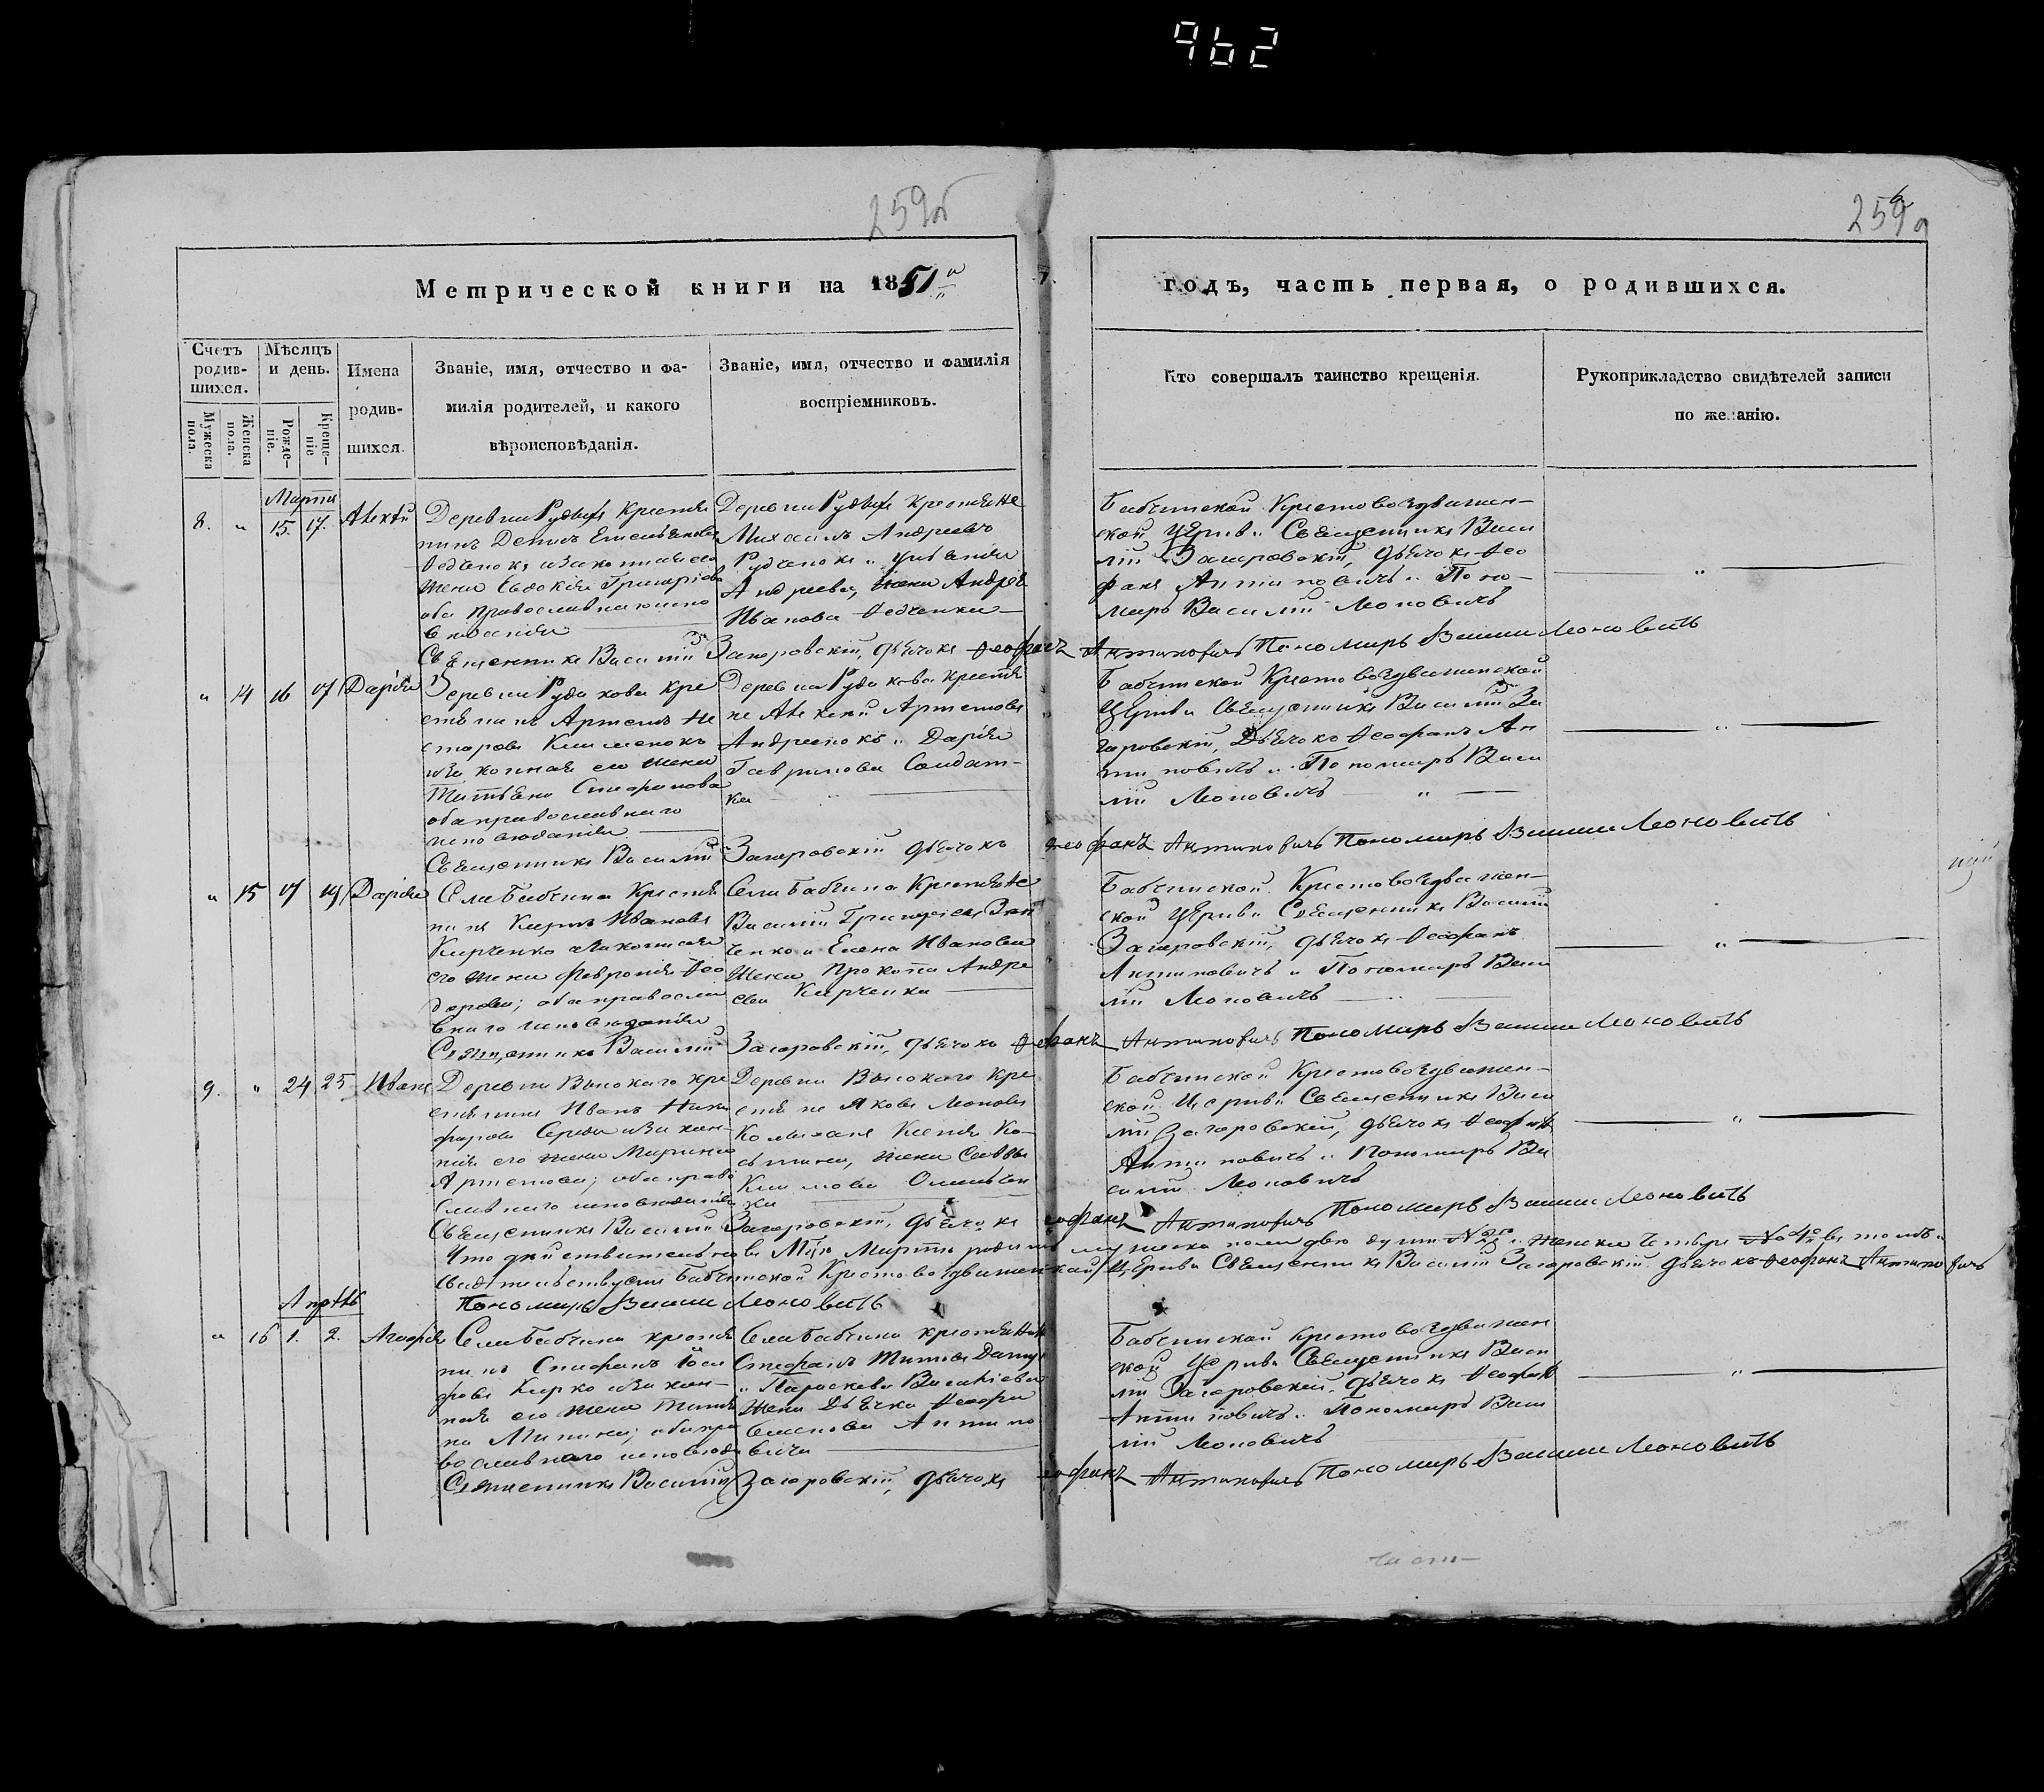 962
259об
259а
Метрической книги на 1851й
годъ, часть первая, о родившихся.
Счетъ родив-шихся.
Мѣсяцъ и день.
Имена родив-шихся.
Званіе, имя, отчество и фа-
милія родителей, и какого
вѣроисповѣданія.
Званіе, имя, отчество и фамилія
воспріемниковъ.
Кто совершалъ таинство крещенія.
Рукоприкладство свидѣтелей записи
по желанію.
Мужеска пола.
Женска пола.
Рожде-ніе.
Креще-ніе
Марта
8. " 15. 17. Алексѣй
Деревни Крестья
нинъ Денисъ Емельяновъ
Федченокъ и законная его
жена Евдокія Григоріева
оба православнаго испо
вѣданія
Деревни Крестьяне
Михаилъ Андреевъ
Рудченокъ и
Андреева, жена Андрея
Иванова Федченка
Бабчинской Крестовоздвижен-
ской Церкви Священникъ Васи
лій Загоровскій, Дьячокъ Фео
фанъ Антиповичъ и Поно-
марь Василій Моновичъ
Священникъ Василій Загоровскій, Дьячокъ Феофанъ Антиповичъ Пономарь Василий Моновичъ
" 14 16 17 Дарія
Деревни Рудакова Кре
стьянинъ Артемъ Не
стеровъ Клименокъ
и законная его жена
Татьяна Стефанова
оба православнаго
исповѣданія
Деревни Рудакова Крестья
не Алексѣй Артемовъ
Андреенокъ и Дарія
Гаврилова Солдат-
ка
Бабчинской Крестовоздвиженской
Церкви Священникъ Василій За
горовскій, Дьячокъ Феофанъ Ан
типовичъ и Пономарь Васи
лій Моновичъ
Священникъ Василій Загоровскій Дьячокъ Феофанъ Антиповичъ Пономарь Василий Моновичъ
" 15 17 19 Дарія
Села Бабчина Крестья
нинъ Карпъ Ивановъ
Кирченко и законная
его жена Февронія Фео
дорова; оба правосла
внаго исповѣданія
Села Бабчина Крестьяне
Василій Григоріевъ
ченко и Елена Иванова
жена Прокопа Андре
ева Кирченки
Бабчинской Крестовоздвижен-
ской Церкви Священникъ Василій
Загоровскій, Дьячокъ Феофанъ
Антиповичъ и Пономарь Васи
лій Моновичъ
Священникъ Василій Загоровскій, Дьячокъ Феофанъ Антиповичъ Пономарь Василий Моновичъ
9. " 24 25 Иванъ
Деревни Высокаго кре
стьянинъ Иванъ Ники
форовъ Середа и закон-
ная его жена Марина
Артемова; оба право
славнаго исповѣданія
Деревни Высокаго Кре
стьяне Яковъ Леоновъ
и Ксенія Ко-
зьмина, жена Саввы
Климова
Бабчинской Крестовоздвижен-
ской Церкви Священникъ Васи
лій Загоровскій, Дьячокъ Феофанъ
Антиповичъ и Пономарь Ва
силій Моновичъ
Священникъ Василій Загоровскій, Дьячокъ Феофанъ Антиповичъ Пономарь Василий Моновичъ
Что дѣйствительно въ Мцѣ Мартѣ родилось мужеска пола двѣ души №2го и женска четыре №4о въ томъ и
свидѣтельствуемъ Бабчинской Крестовоздвиженской Церкви Священникъ Василій Загоровскій Дьячокъ Феофанъ Антиповичъ
Пономарь Василий Моновичъ
Апрѣль
" 16 1. 2. Агафія
Села Бабчина крестья
нинъ Стефанъ Іоси
фовъ Кирко и закон-
ная его жена Татья
на Минина; оба пра
вославнаго исповѣда
Села Бабчина крестьянинъ
Стефанъ Титовъ
и Параскева Василіева
жена Дьячка Феофа
Антипо
вича
Бабчинской Крестовоздвижен
ской Церкви Священникъ Васи
лій Загоровскій, Дьячокъ Феофанъ
Антиповичъ и Пономарь Васи
лій Моновичъ
Священникъ Василій Загоровскій, Дьячокъ Феофанъ Антиповичъ Пономарь Василий Моновичъ